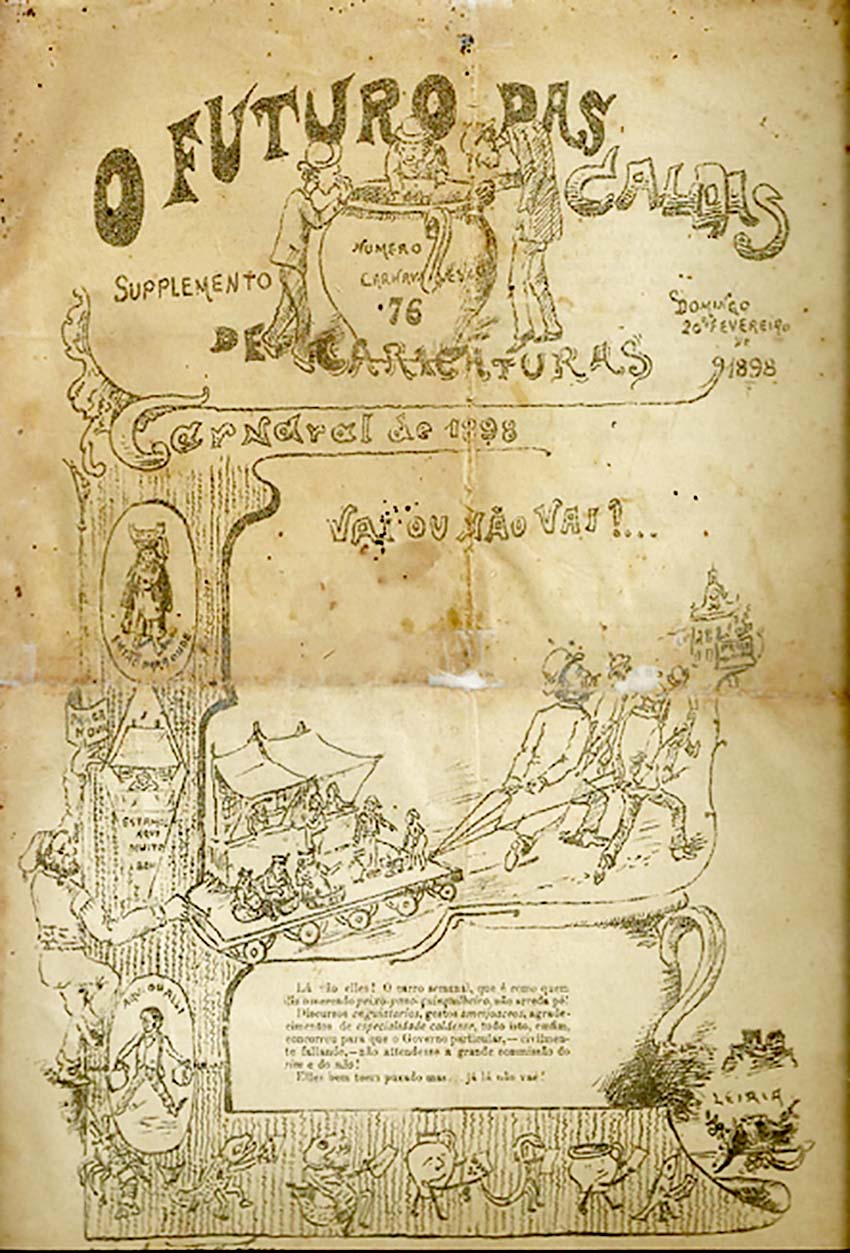 O FUTURO DAS CALDAS
NUMERO
CARNAVALESCO
76
SUPPLEMENTO
DE CARICATURAS
DOMINGO
20 DE FEVEREIRO
DE
1898
Carnaval de 1898
VAI OU NÃO VAI?...
ESTAMOS
AQUI
MUITO
BEM
AQUI OU ALLI
Lá vão elles! O carro semanal, que é como quem
diz o mercado peixo-pano-quinquilheiro, não arreda pé!
Discursos enguiatarios, gestos ameijoaceos, agrade-
cimentos de especialidade caldense, tudo isto, emfim,
concorreu para que o Governo particular,—civilmen-
te fallando,—não attendesse a grande commissão do
sim e do não!
Elles bem teem puxado mas... já lá não vae!
LEIRIA